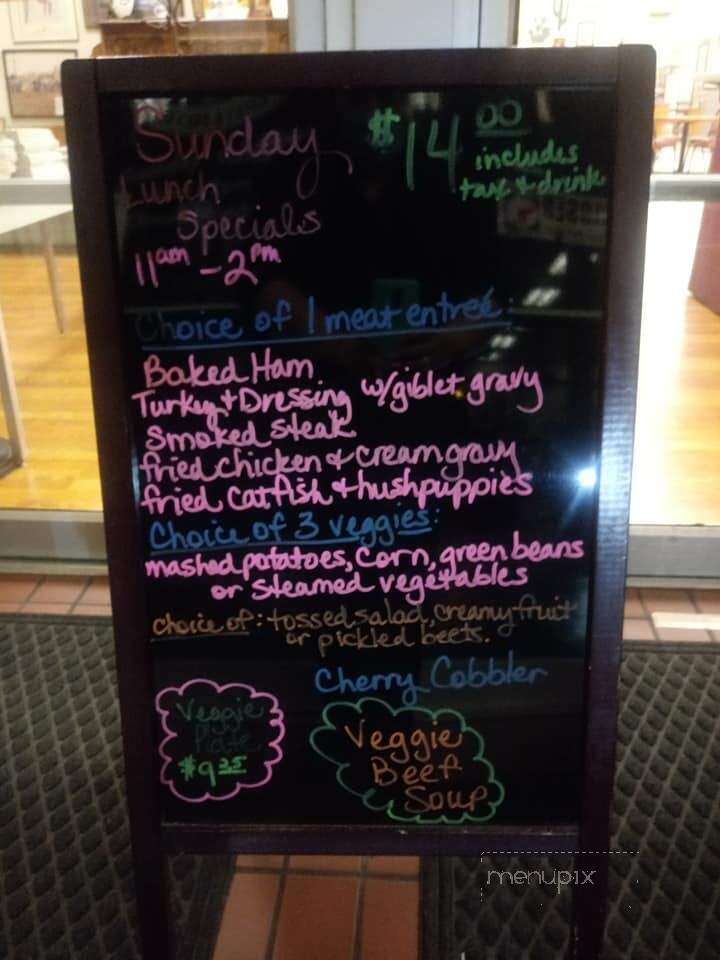 Sunday
Lunch
Specials
11am - 2pm
$14.00
includes
tax & drink
Choice of 1 meat entreé:
Baked Ham
Turkey & Dressing w/giblet gravy
Smoked steak
fried chicken & cream gravy
fried catfish & hushpuppies
Choice of 3 veggies:
mashed potatoes, corn, green beans
or steamed vegetables
choice of: tossed salad, creamy fruit
or pickled beets.
Cherry Cobbler
Veggie
Plate
$9.35
Veggie
Beef
Soup
menupix